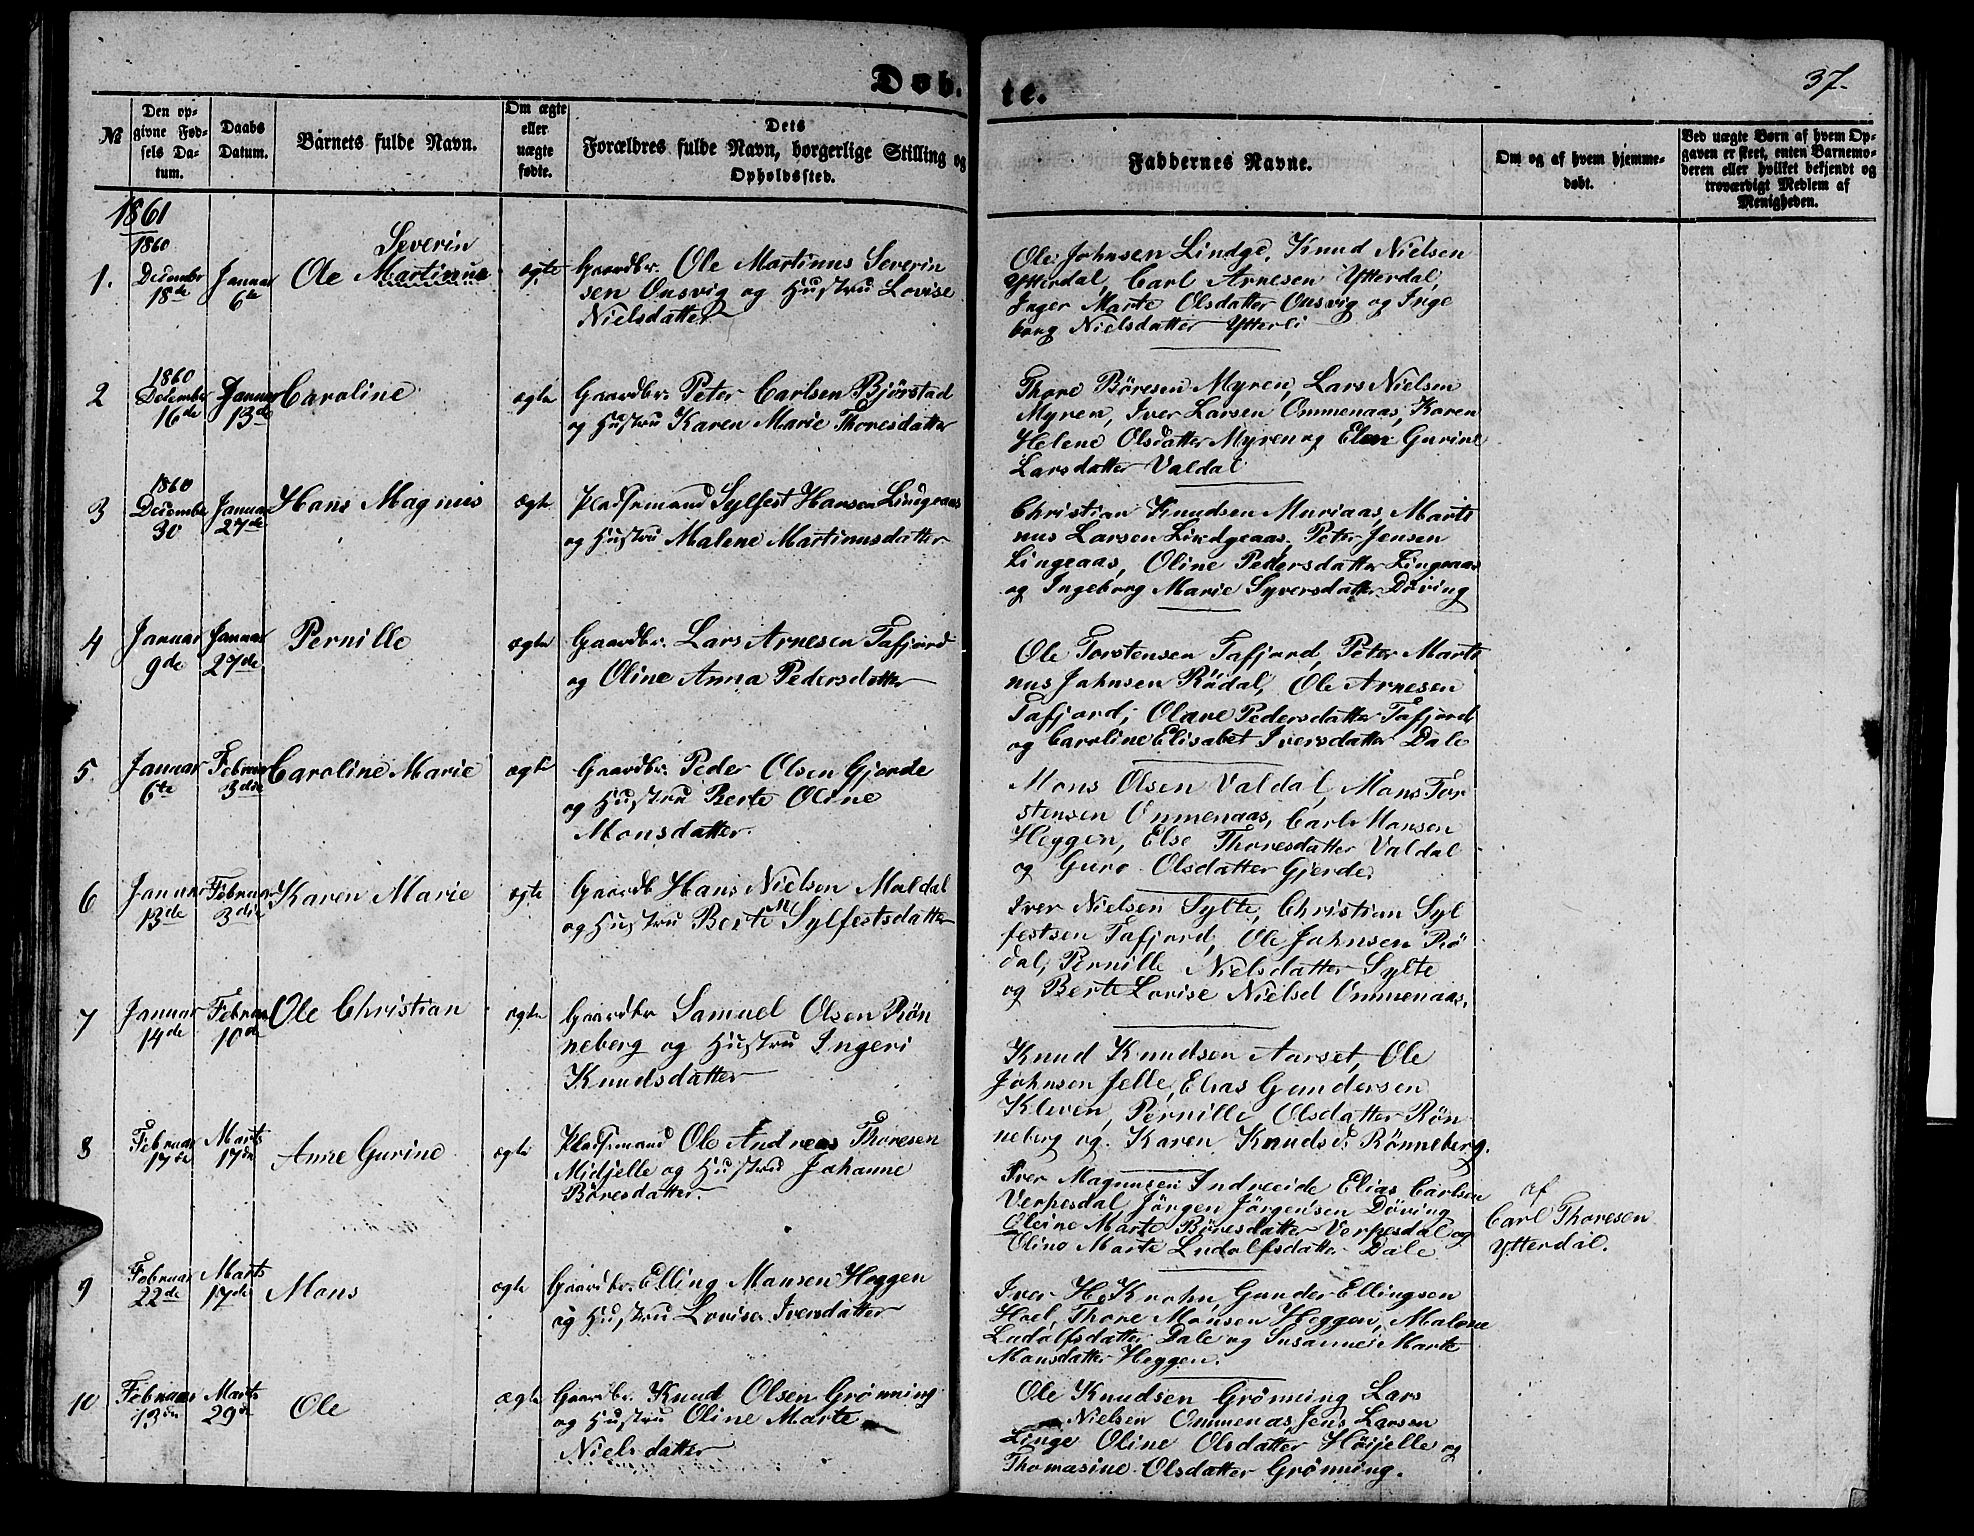 Døb.
te.
37.
№
Den op-
givne Fød-
sels Da-
tum.
Daabs
Datum.
Barnets fulde Navn.
Om ægte
eller
uægte
fødte.
Dets
Forældres fulde Navn, borgerlige Stilling og
Opholdssted.
Faddernes Navne.
Om og af hvem hjemme-
døbt.
Ved uægte Børn af hvem Op-
gaven er skeet, enten Barnemo-
deren eller hvilket bekjendt og
troværdigt Medlem af
Menigheden.
1861
1.
1860
Decembr
18de
Januar
6te
Severin
Ole Martinus
ægte
Gaardbr. Ole Martinus Severin
sen Onsvig og Hustru Lovise
Nielsdatter
Ole Johnsen Lindge, Knud Nielsen
Ytterdal, Carl Arnesen Ytterdal,
Inger Marte Olsdatter Onsvig og Inge
borg Nielsdatter Ytterli
2
1860
December
16de
Januar
13de
Caroline
ægte
Gaardbr. Peter Carlsen Bjørstad
og Hustru Karen Marie Thoresdatter
Thore Børesen Myren, Lars Nielsen
Myren, Iver Larsen Ommenaas, Karen
Helene Olsdatter Myren og Elen Gurine
Larsdatter Valdal
3
1860
December
30
Januar
27de
Hans Magnus
ægte
Pladsemand Sylfest Hansen Lingeaas
og Hustru Malene Martinusdatter
Christian Knudsen Muriaas, Marti
nus Larsen Lindgeaas, Peter Jensen
Lingeaas, Oline Pedersdatter Lingeaas
og Ingeborg Marie Syversdatter Døving
4
Januar
9de
Januar
27de
Pernille
ægte
Gaardbr. Lars Arnesen Tafjord
og Oline Anna Pedersdatter
Ole Torstensen Tafjord, Peter Marti
nus Johnsen Rødal, Ole Arnesen
Tafjord, Olave Pedersdatter Tafjord
og Caroline Elisabet Iversdatter Dale
5
Januar
6te
Februar
3die
Caroline Marie
ægte
Gaardbr. Peder Olsen Gjerde
og Hustru Berte Oline
Monsdatter
Mons Olsen Valdal, Mons Tor
stensen Ommenaas, Carl Monsen
Heggen, Else Thoresdatter Valdal
og Guro Olsdatter Gjerde.
6
Januar
13de
Februar
3die
Karen Marie
ægte
Gaardb Hans Nielsen Muldal
og Hustru Berte N Sylfestsdatter
Iver Nielsen Sylte, Christian Syl
festsen Tafjord, Ole Johnsen Rø
dal, Pernille Nielsdatter Sylte
og Berte Lovise Nielsd Ommenaas.
7
Januar
14de
Februar
10de
Ole Christian
ægte
Gaardbr Samuel Olsen Røn
neberg og Hustru Ingeri
Knudsdatter
Knud Knudsen Aarset, Ole
Johnsen Jelle, Elias Gundersen
Kleven, Pernille Olsdatter Røn
neberg og Karen Knudsd. Rønneberg.
8
Februar
17de
Marts
17de
Anne Gurine
ægte
Pladsemand Ole Andreas Thoresen
Midjelle og Hustru Johanne
Børesdatter.
Iver Magnusen Indreeide Elias Carlsen
Verpesdal Jørgen Jørgensen Døving
Oleine Marte Børesdatter Verpesdal og
Oline Marte Ludolfsdatter Dale
af
Carl Thoresen
Ytterdal.
9
Februar
22de
Marts
17de
Mons
ægte
Gaardbr. Elling Monsen Heggen
og Hustru Lovise Iversdatter
Iver H. Krohn, Gunder Ellingsen
Hoel, Thore Monsen Heggen, Malene
Ludolfsdatter Dale og Susanne Marte
Monsdatter Heggen.
10
Februar
13de
Marts
29de
Ole
ægte
Gaardbr. Knud Olsen Grønning
og Hustru Oline Marte
Nielsdatter
Ole Knudsen Grønning Lars
Nielsen Ommenas, Jens Larsen
Linge Oline Olsdatter Høijelle og
Thomasine Olsdatter Grønning.